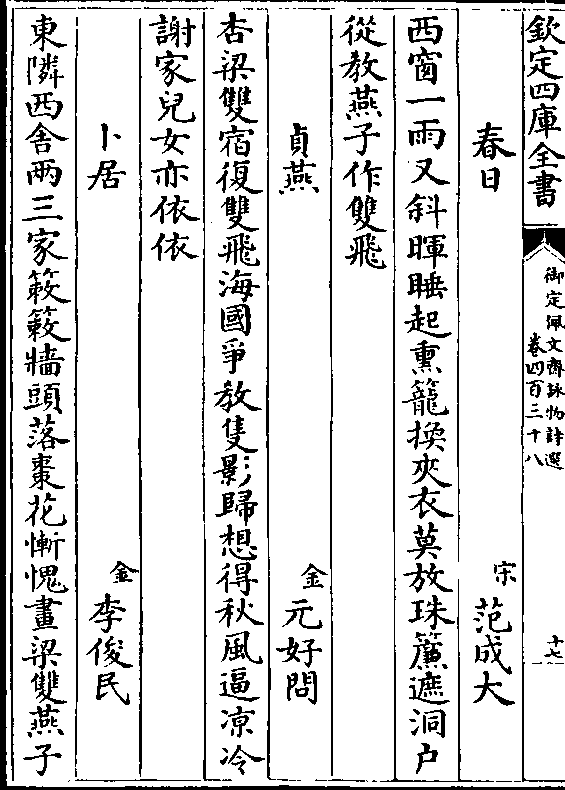 欽定四庫全書
御定佩文齋詠物詩選
卷四百三十八
十七
春日
宋 范成大
西窗一雨又斜暉睡起熏籠換夾衣莫放珠簾遮洞户
從教燕子作雙飛
貞燕
金 元好問
杏梁雙宿復雙飛海國爭教隻影歸想得秋風逼凉冷
謝家兒女亦依依
卜居
金 李俊民
東隣西舍兩三家簌簌牆頭落棗花慚愧畫梁雙燕子